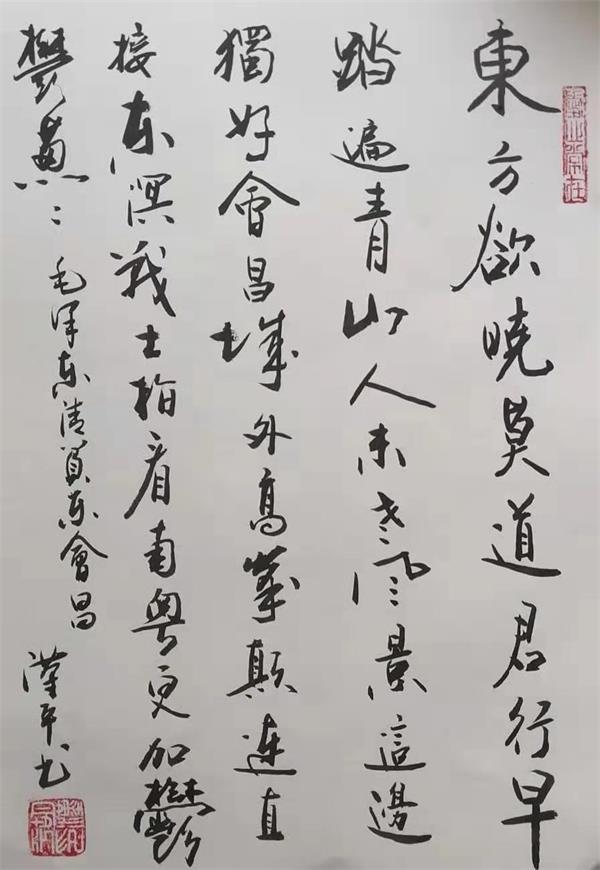 東方欲曉莫道君行早
踏遍青山人未老風景這邊
獨好會昌城外高峯顛連直
接东溟戰士指看南粵更加鬱
鬱蔥〻 毛泽东清平乐會昌
漢平书